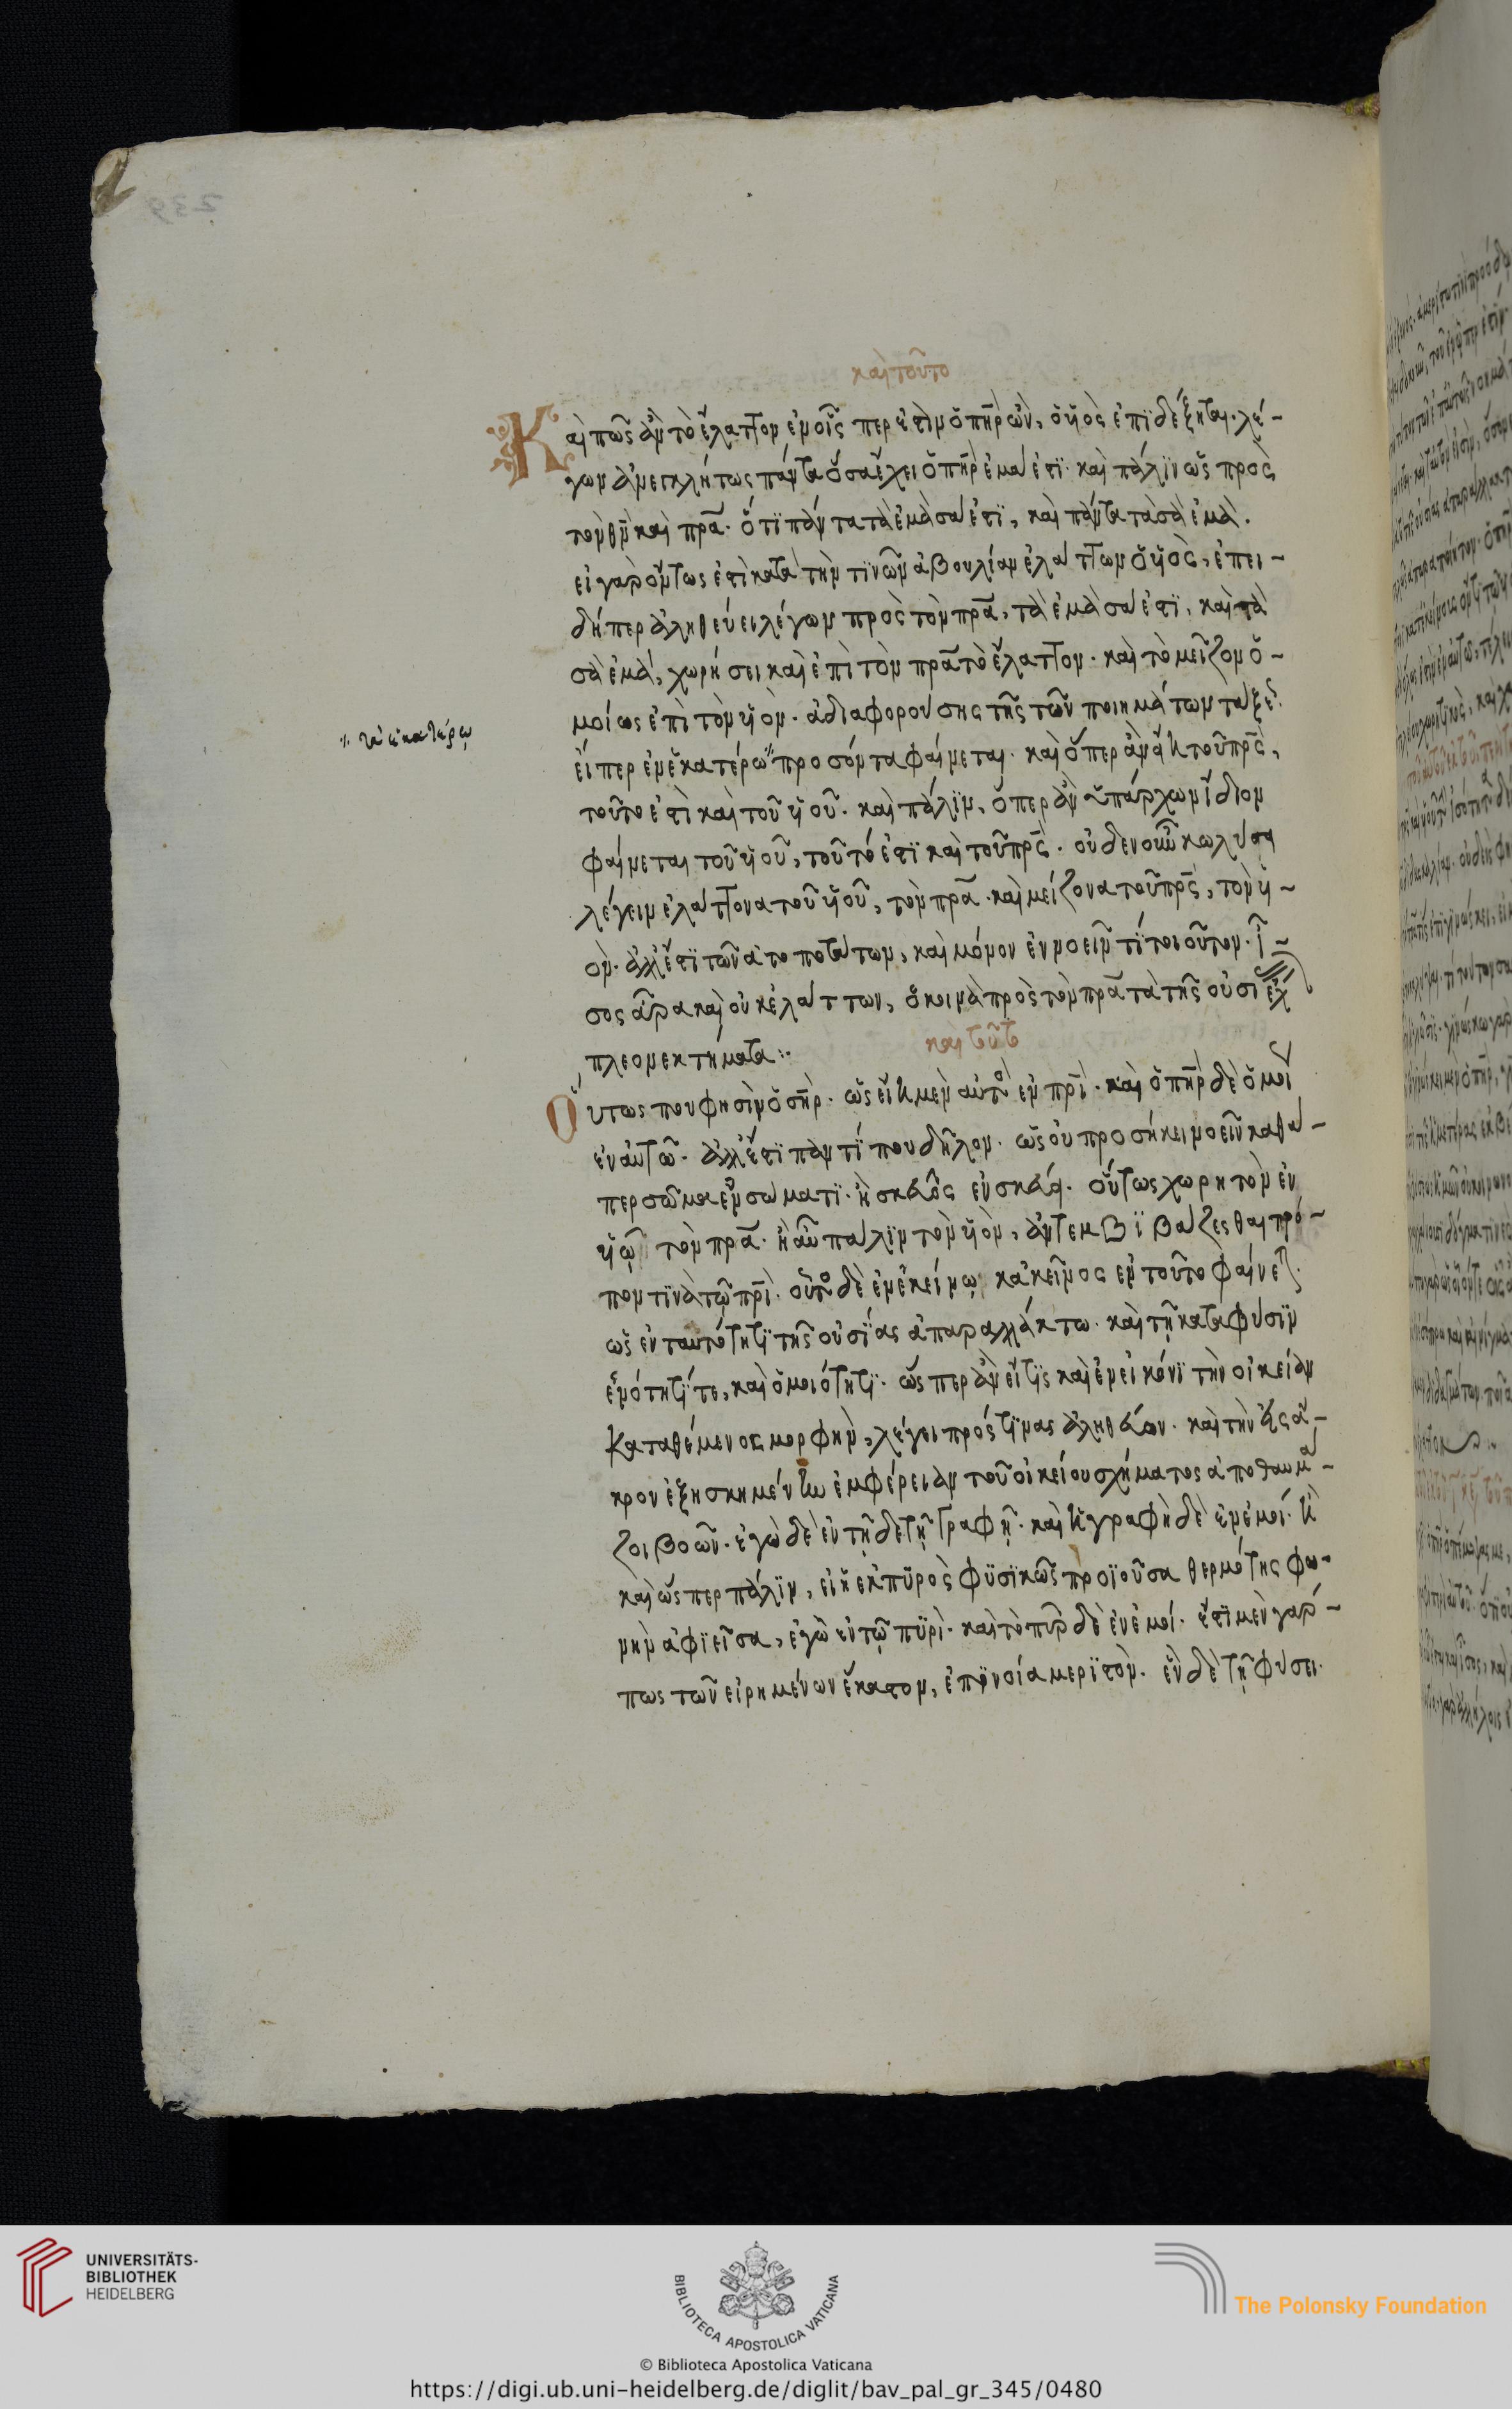 καὶ τοῦτο
Καὶ πῶς ἂν τὸ ἔλαττον ἐν οἷς περ ἐστὶν ὁ πηρ ὢν, ὁ υἱὸς ἐπιδέξηται· λέ-
γων ἀνεγκλήτως πάντα ὅσα ἔχει ὁ πηρ ἐμά ἐστι· καὶ πάλιν ὡς πρὸς
τὸν θν καὶ πρα· ὅτι πάντα τὰ ἐμὰ σά ἐστι, καὶ πάντα τὰ σὰ ἐμά.
εἰ γὰρ ὄντως ἐστὶ κατὰ τὴν τινῶν ἀβουλίαν ἐλάττων ὁ υἱὸς, ἐπει-
δήπερ ἀληθεύει λέγων πρὸς τὸν πρα, τὰ ἐμὰ σά ἐστι, καὶ τὰ
σὰ ἐμά, χωρήσει καὶ ἐπὶ τὸν πρα τὸ ἔλαττον· καὶ τὸ μεῖζον ὁ-
μοίως ἐπὶ τὸν υἱὸν· ἀδιαφορούσης τῆς τῶν ποιημάτων τάξε
εἴπερ ἐν ἑκατέρω προσόντα φαίνεται· καὶ ὅπερ ἂν ἦ τοῦ πρς,
τοῦτο ἐστὶ καὶ τοῦ υἱοῦ· καὶ πάλιν, ὅπερ ἂν ὑπάρχων ἴδιον
φαίνεται τοῦ υἱοῦ, τοῦτό ἐστι καὶ τοῦ πρς· οὐδὲν οὖν κωλύσαι
λέγειν ἐλάττονα τοῦ υἱοῦ, τὸν πρα· καὶ μείζονα τοῦ πρς, τὸν υἱ-
ὸν· ἀλλ' ἔστι τῶν ἀτοπωτάτων, καὶ μόνον ἐννοεῖν τί τοιοῦτον· ἴ-
σος ἄρα καὶ οὐκ ἐλάττων, ὁ κοινὰ πρὸς τὸν πρα τὰ τῆς οὐσί ἔχ
πλεονεκτήματα:·
καὶ ταῦτα
Οὕτως που φησὶν ὁ σηρ· ὡς εἴη μὲν αὐτὸ ἐν πρι· καὶ ὁ πηρ δὲ ὁμοί
ἐν αὐτῶ· ἀλλ' ἔστι παντί που δῆλον· ὡς οὐ προσήκει νοεῖν καθά-
περ σῶμα ἐν σώματι· ἢ σκεῦος ἐν σκεύει· οὕτως χωρητὸν ἐν
υἱῶ τὸν πρα· ἢ αὖ πάλιν τὸν υἱὸν, ἀντεμβιβάζεσθαι τρό-
πον τινὰ τῶ πρι· οὗτο δὲ ἐν ἐκείνω κἀκεῖνος ἐν τοῦτο φαίνε
ὡς ἐν ταυτότητι τῆς οὐσίας ἀπαραλλάκτω· καὶ τῆ κατὰ φύσιν
ἑνότητι τε, καὶ ὁμοιότητι· ὥσπερ ἂν εἴ τις καὶ ἐν εἰκόνι τὴν οἰκείαν
καταθέμενος μορφὴν, λέγει πρός τινας ἀληθεύων· καὶ τὴν εἰς ἄ-
κρον ἐξησκημένην ἐμφέρειαν τοῦ οἰκείου σχήματος ἀποθαυμά-
ζοι βοῶν· ἐγὼ δὲ ἐν τῆδε τῆ γραφῆ· καὶ ἡ γραφὴ δὲ ἐν ἐμοί· ἢ
καὶ ὥσπερ πάλιν, εἰ ἡ ἐκ πυρὸς φυσικῶς προϊοῦσα θερμότης φω-
νὴν ἀφιεῖσα, ἐγὼ ἐν τῶ πυρὶ· καὶ τὸ πῦρ δὲ ἐν ἐμοί· ἔστι μὲν γάρ
πως τῶν εἰρημένων ἕκαστον, ἐπινοία μεριστὸν. ἓν δὲ τῆ φύσει·
τῶ ἑκατέρω
239
UNIVERSITÄTS-
BIBLIOTHEK
HEIDELBERG
BIBLIOTECA APOSTOLICA VATICANA
The Polonsky Foundation
© Biblioteca Apostolica Vaticana
https://digi.ub.uni-heidelberg.de/diglit/bav_pal_gr_345/0480